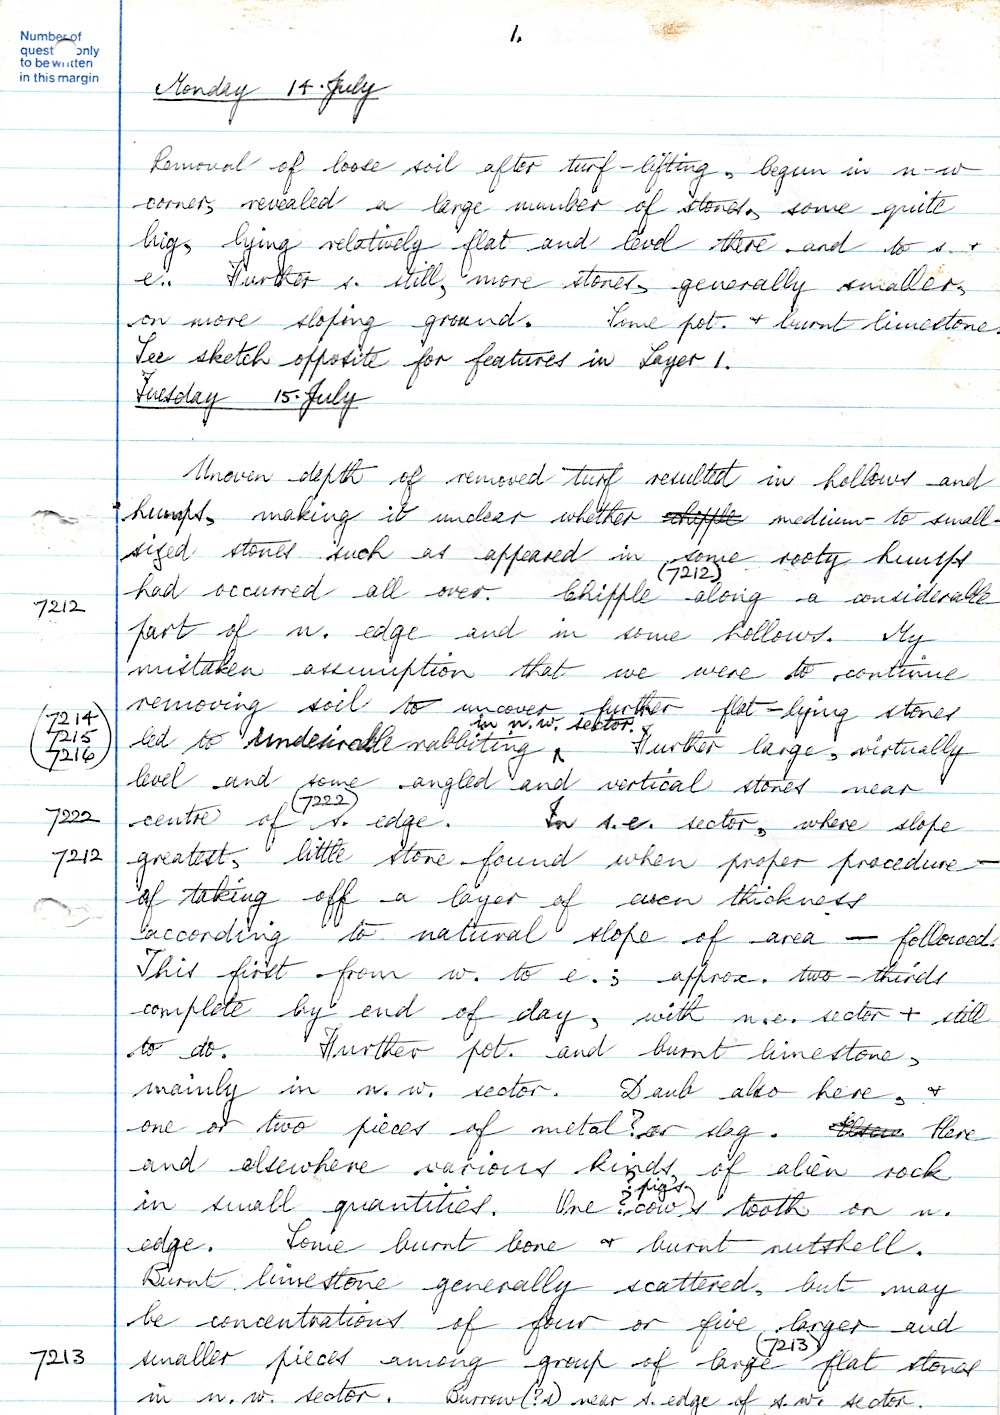 Number of
quest  only
to be written
in this margin
1.
Monday 14. July
Removal of loose soil after turf-lifting, begun in n-w
corner, revealed a large number of stones, some quite
big, lying relatively flat and level there and to s. +
e.. Further s. still, more stones, generally smaller,
on more sloping ground. Some pot. + burnt limestone.
See sketch opposite for features in Layer 1.
Tuesday 15. July
Uneven depth of removed turf resulted in hollows and
humps, making it unclear whether chipple medium- to small-
sized stones such as appeared in some rooty humps
(7212)
7212 had occurred all over. Chipple along a considerable
part of n. edge and in some hollows. My
mistaken assumption that we were to continue
removing soil to uncover further flat-lying stones
(7214
7215
7216)
in n.w. sector.
led to undesirable rabbiting. Further large, virtually
level and some angled and vertical stones near
(7222)
7222 centre of s. edge. In s.e. sector, where slope
7212 greatest, little stone found when proper procedure —
of taking off a layer of even thickness
according to natural slope of area — followed.
This first from w. to e.; approx. two-thirds
complete by end of day, with n.e. sector + still
to do. Further pot. and burnt limestone,
mainly in n.w. sector. Daub also here, +
one or two pieces of metal? or slag. Here
and elsewhere various kinds of alien rock
? pig's
in small quantities. One ?cow's tooth on n.
edge. Some burnt bone + burnt nutshell.
Burnt limestone generally scattered, but may
be concentrations of four or five larger and
(7213)
7213 smaller pieces among group of large flat stones
in n.w. sector. Burrow(?s) near s. edge of s.w. sector.